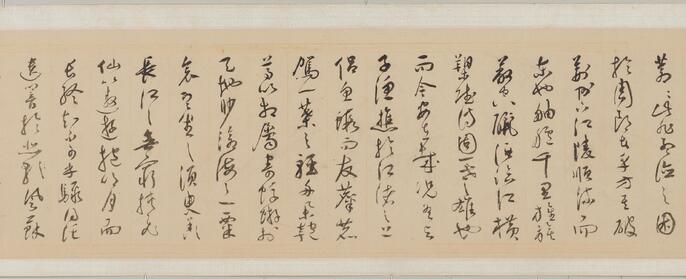 蒼〻此非孟德之困
於周郎者乎方其破
荊州下江陵順流而
東也舳艫千里旌旗
蔽空釃酒臨江橫
槊賦詩固一世之雄也
而今安在哉況吾與
子漁樵於江渚之上
侶魚蝦而友麋鹿
駕一葉之輕舟舉匏
尊以相屬寄蜉蝣於
天地渺滄海之一粟
哀吾生之須臾羨
長江之無窮挾飛
仙以遨遊抱明月而
長終知不可乎驟得託
遺響於悲風蘇